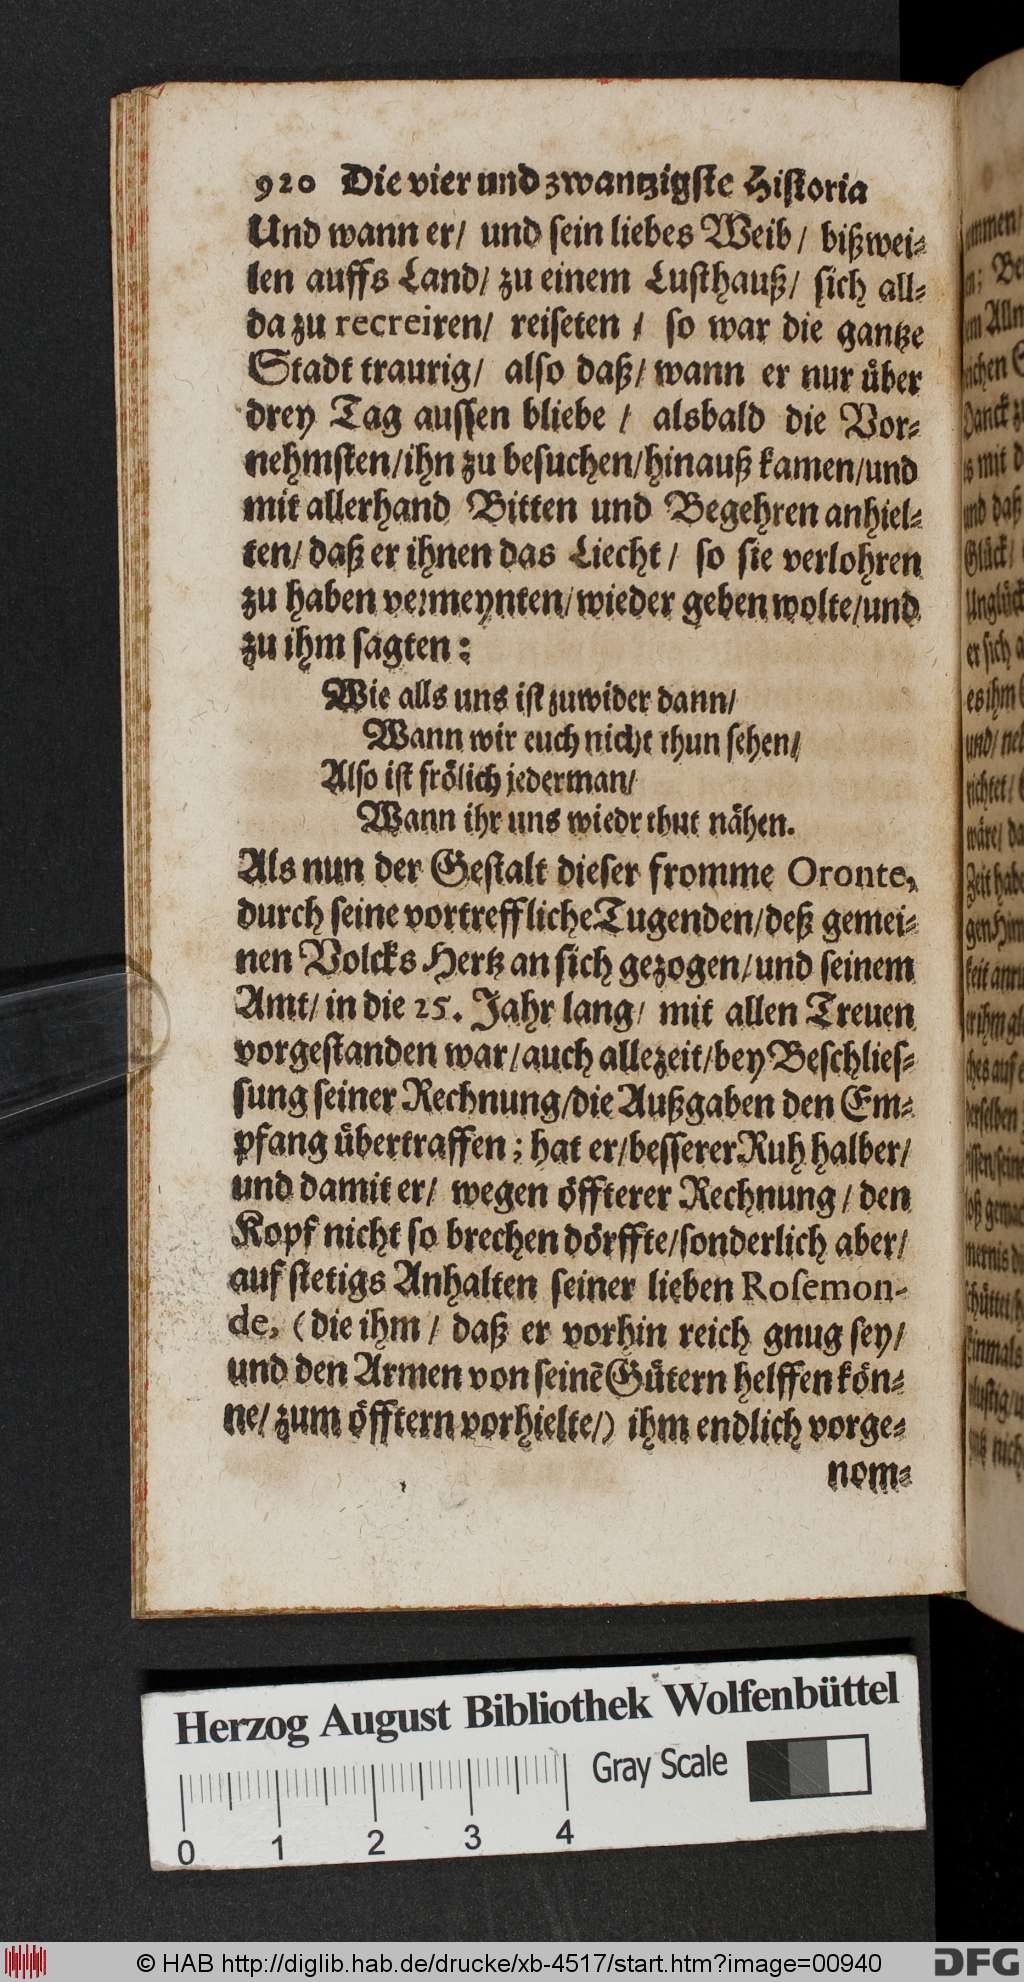 920 Die vier und zwantzigste Historia
Und wann er/ und sein liebes Weib/ bißwei-
len auffs Land/ zu einem Lusthauß/ sich all-
da zu recreiren/ reiseten/ so war die gantze
Stadt traurig/ also daß/ wann er nur uͤber
drey Tag aussen bliebe/ alsbald die Vor-
nehmsten/ihn zu besuchen/hinauß kamen/und
mit allerhand Bitten und Begehren anhiel-
ten/ daß er ihnen das Liecht/ so sie verlohren
zu haben vermeynten/wieder geben wolte/und
zu ihm sagten:
Wie alls uns ist zuwider dann/
Wann wir euch nicht thun sehen/
Also ist froͤlich jederman/
Wann ihr uns wiedr thut naͤhen.
Als nun der Gestalt dieser fromme Oronte,
durch seine vortreffliche Tugenden/deß gemei-
nen Volcks Hertz an sich gezogen/und seinem
Amt/ in die 25. Jahr lang/ mit allen Treuen
vorgestanden war/auch allezeit/bey Beschlies-
sung seiner Rechnung/die Außgaben den Em-
pfang uͤbertraffen; hat er/besserer Ruh halber/
und damit er/ wegen oͤffterer Rechnung/ den
Kopf nicht so brechen doͤrffte/sonderlich aber/
auf stetigs Anhalten seiner lieben Rosemon-
de, (die ihm/ daß er vorhin reich gnug sey/
und den Armen von seinẽ Guͤtern helffen koͤn-
ne/ zum oͤfftern vorhielte/) ihm endlich vorge-
nom-
Herzog August Bibliothek Wolfenbüttel
Gray Scale
0 1 2 3 4
© HAB http://diglib.hab.de/drucke/xb-4517/start.htm?image=00940
DFG